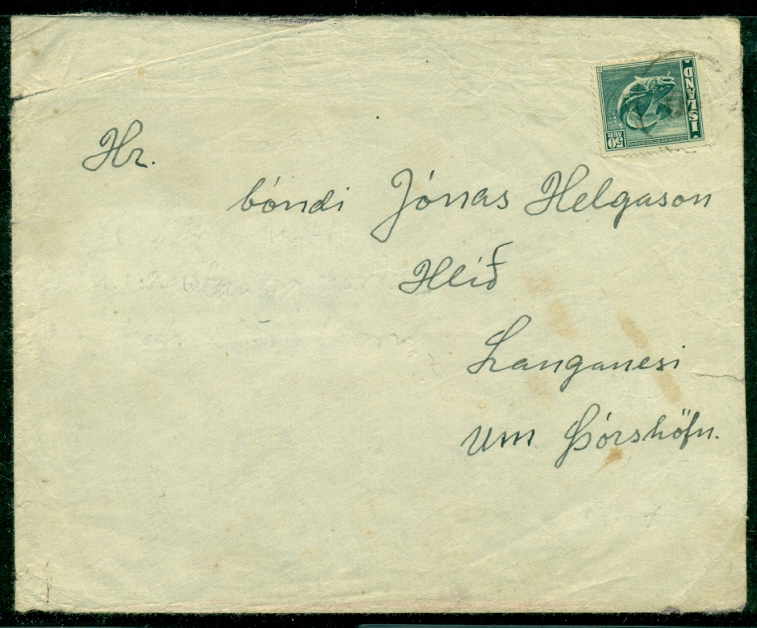 ÍSLAND
50
AUR
Hr.
bóndi Jónas Helgason
Hlíð
Langanesi
um Þórshöfn.